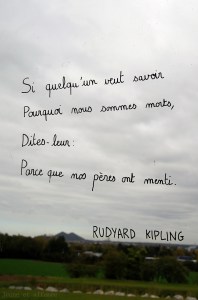 Si quelqu'un veut savoir
Pourquoi nous sommes morts,
Dites-leur:
Parce que nos pères ont menti.
RUDYARD KIPLING